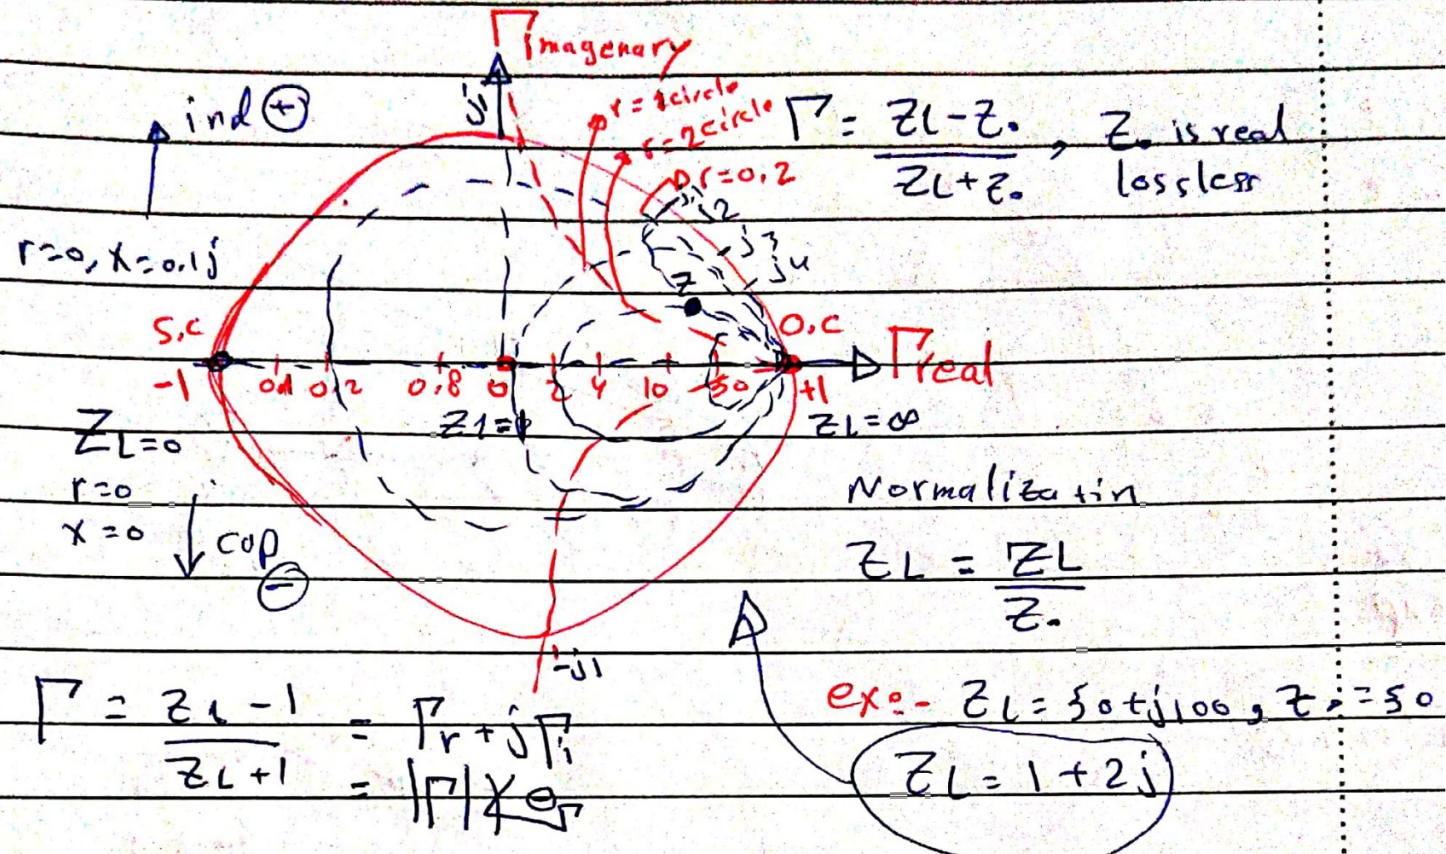 Γ Imagenary
ind +
j1
r = 1 circle
r = 2 circle
r = 0,2
Γ = ZL - Z₀ / ZL + Z₀ , Z₀ is real
lossless
j1
j2
j3
j4
r=0, X=0.1j
Z
S.C
O.C
Γreal
-1 0.1 0.2 0.8 0 2 4 10 50 +1
ZL=0
Z1=1
ZL=∞
r=0
x=0
cap
-
Normalizatin
ZL = ZL / Z₀
-j1
Γ = ZL - 1 / ZL + 1 = Γr + jΓi
= |Γ| ∠θΓ
ex:- ZL = 50+j100, Z₀ = 50
ZL = 1 + 2j